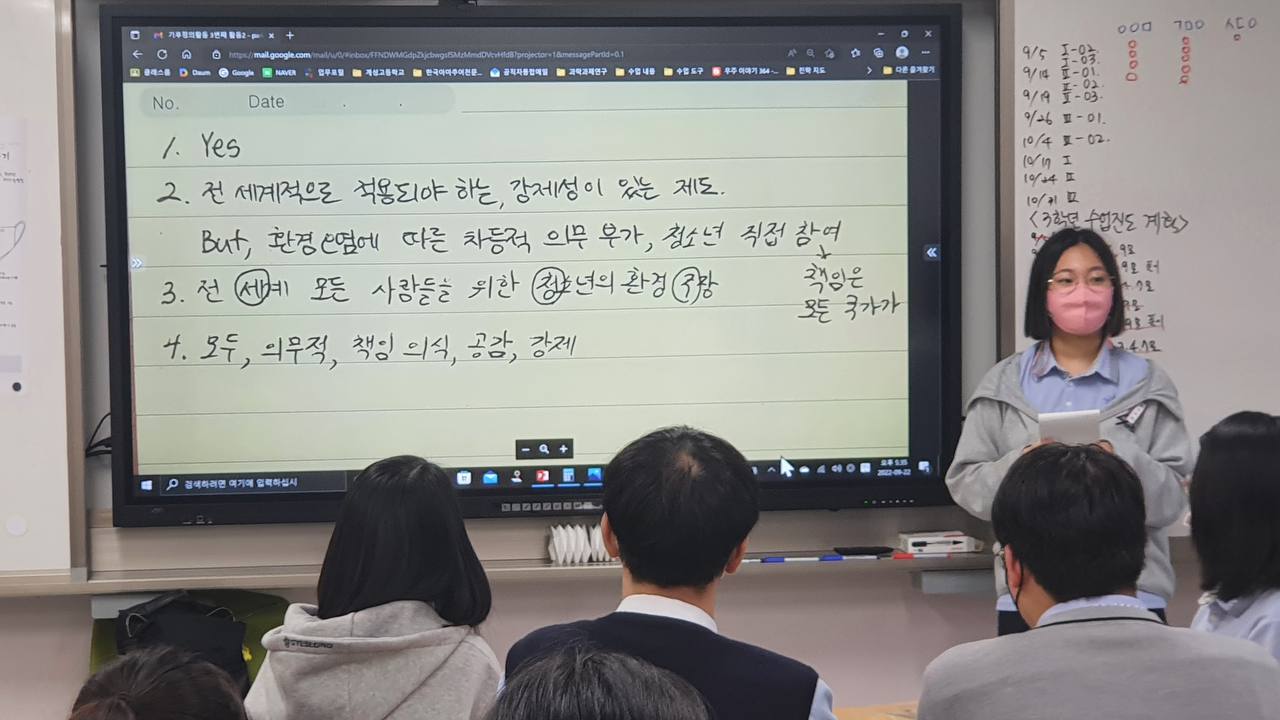 기후정의활동 3번째 활동2
https://mail.google.com/mail/u/0/#inbox/FFNDWMGdpZkjcbwgsfSMzMmdDVcvHfdB?projector=1&messagePartId=0.1
클래스룸 Daum Google NAVER 업무포털 계성고등학교 한국아마추어천문... 공직자통합메일 과학과제연구 수업 내용 수업 도구 우주 이야기 364 -... 진학 지도 다른 즐겨찾기
No. Date . .
1. Yes
2. 전 세계적으로 적용되야 하는, 강제성이 있는 제도.
But, 환경오염에 따른 차등적 의무 부가, 청소년 직접 참여
책임은
모든 국가가
3. 전 세계 모든 사람들을 위한 청소년의 환경 주장
4. 모두, 의무적, 책임 의식, 공감, 강제
검색하려면 여기에 입력하십시
오후 5:35
2022-09-22
9/5 I-02.
I-03.
9/14 II-01.
II-02.
9/19 II-03.
9/26 III-01.
10/4 III-02.
10/17 I
10/24 II
10/31 III
<3학년 수업진도 계획>